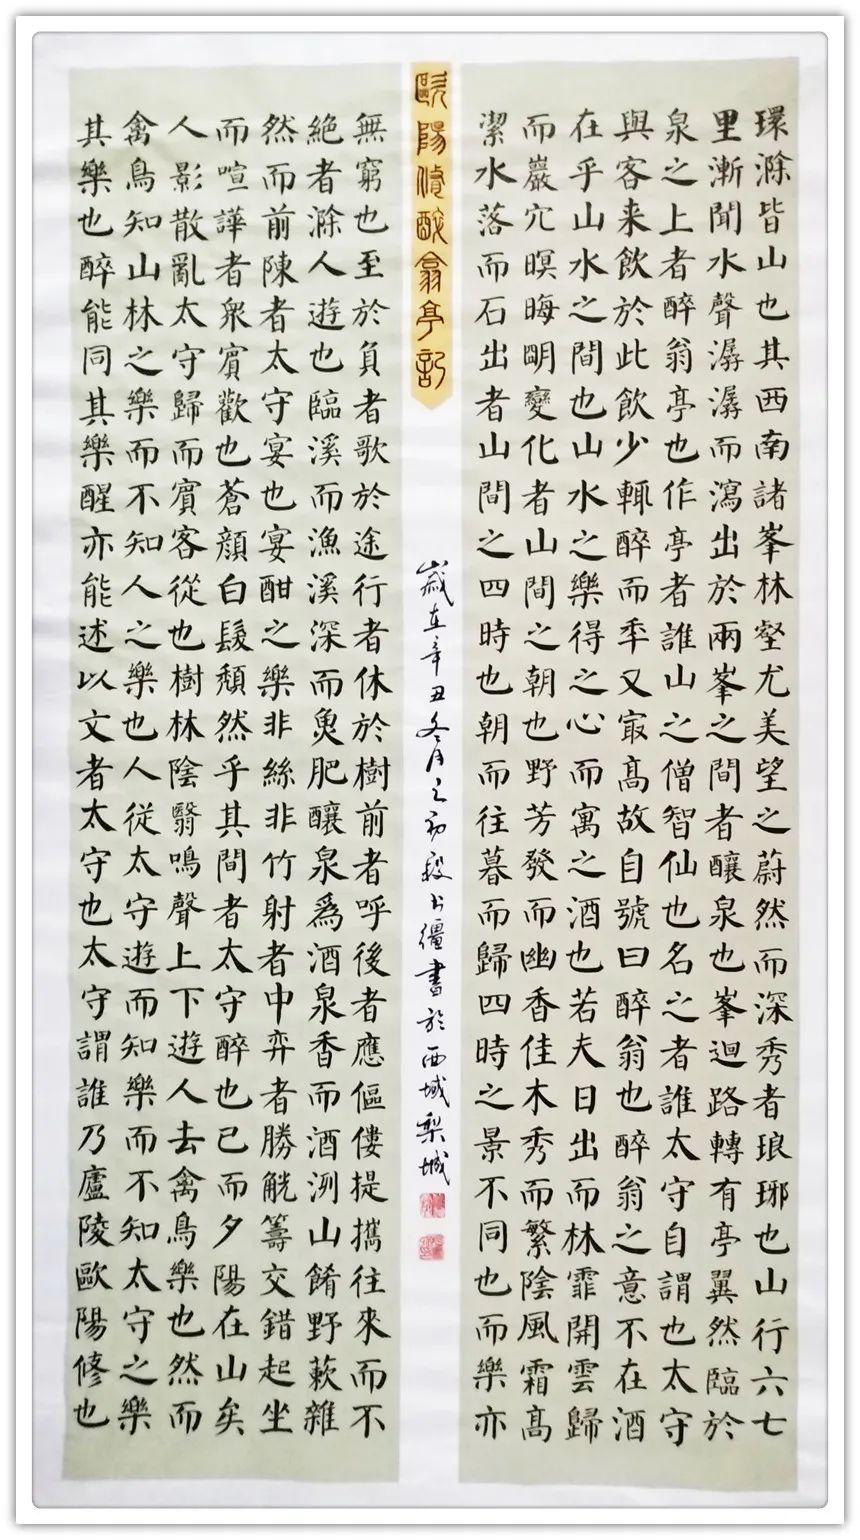 環滁皆山也其西南諸峯林壑尤美望之蔚然而深秀者琅琊也山行六七
里漸聞水聲潺潺而瀉出於兩峯之間者釀泉也峯迴路轉有亭翼然臨於
泉之上者醉翁亭也作亭者誰山之僧智仙也名之者誰太守自謂也太守
與客来飲於此飲少輒醉而年又最高故自號曰醉翁也醉翁之意不在酒
在乎山水之間也山水之樂得之心而寓之酒也若夫日出而林霏開雲歸
而巖穴暝晦明變化者山間之朝也野芳發而幽香佳木秀而繁陰風霜高
潔水落而石出者山間之四時也朝而往暮而歸四時之景不同也而樂亦
歐陽修醉翁亭記
歲在辛丑冬月之初書於西域梨城
無窮也至於負者歌於途行者休於樹前者呼後者應傴僂提攜往來而不
絕者滁人遊也臨溪而漁溪深而魚肥釀泉爲酒泉香而酒洌山餚野蔌雜
然而前陳者太守宴也宴酣之樂非絲非竹射者中弈者勝觥籌交錯起坐
而喧譁者衆賓歡也蒼顏白髮頹然乎其間者太守醉也已而夕陽在山矣
人影散亂太守歸而賓客從也樹林陰翳鳴聲上下遊人去禽鳥樂也然而
禽鳥知山林之樂而不知人之樂也人從太守遊而知樂而不知太守之樂
其樂也醉能同其樂醒亦能述以文者太守也太守謂誰乃廬陵歐陽修也